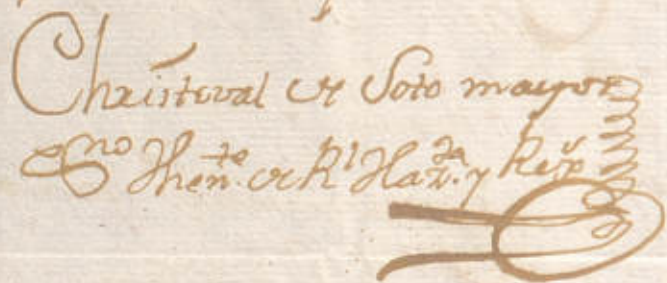 Christoval de Soto mayor
Esno Thente. de Rl Hazda. y